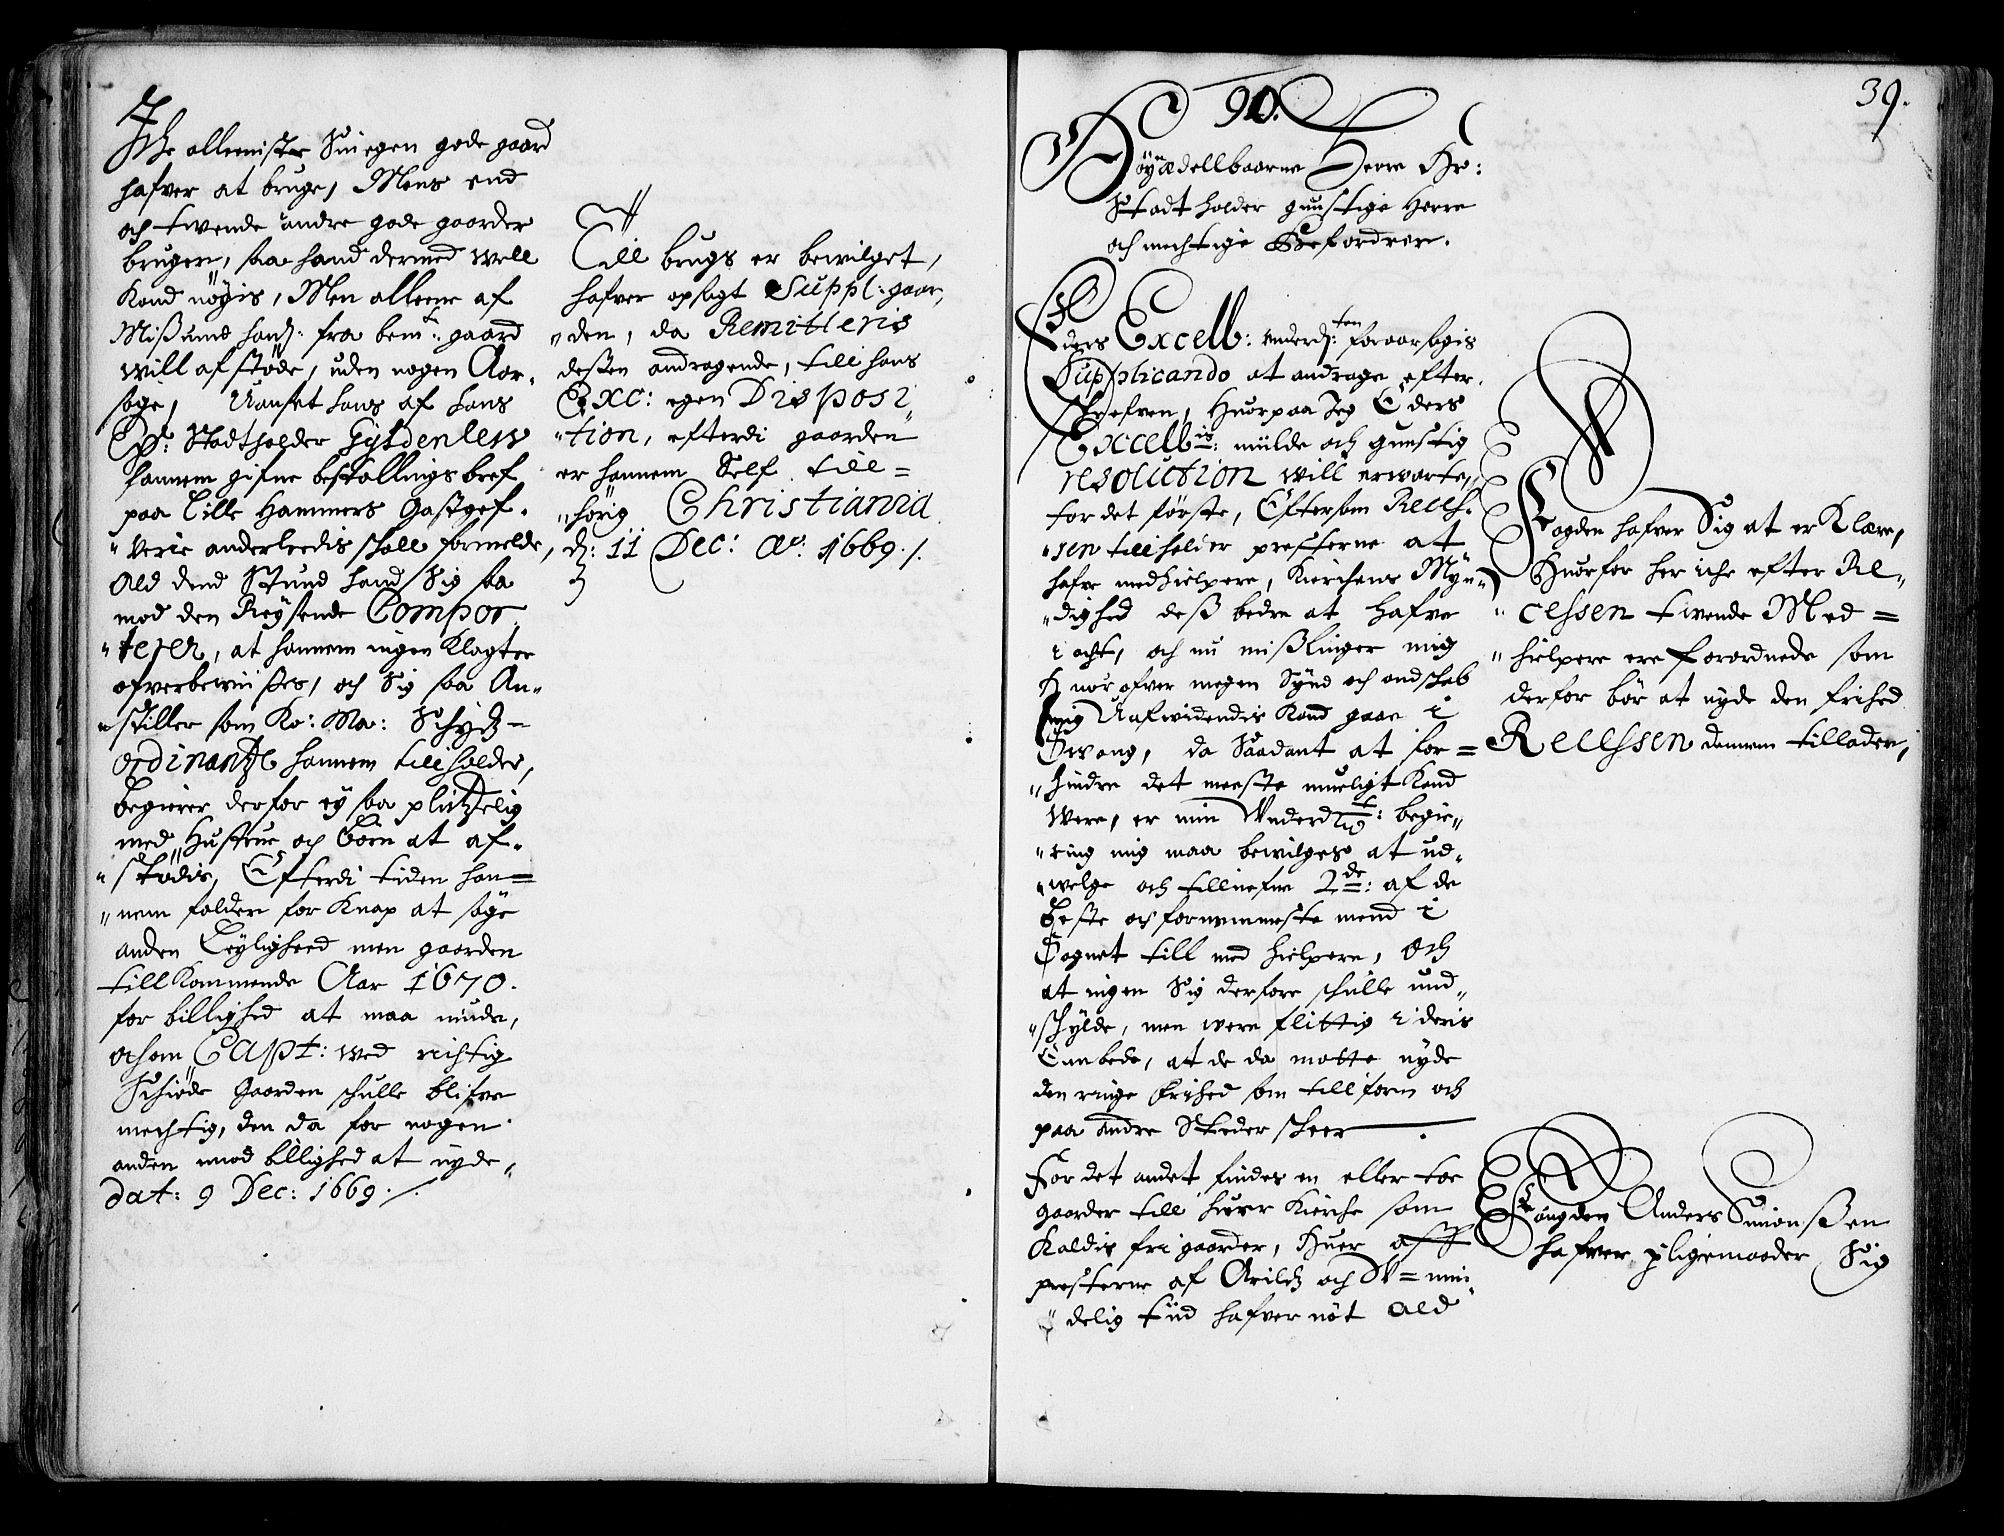 Iche alleeniste Sin egen gode gaard
hafver at bruge, Mens end
och tvende andre gode gaarder
bruger, saa hand dermed well
Kand nögis, Men alleene af
Mißund hand: fra bemt: gaard
will afstöde, uden nogen Aar-
sage, Uanset hans af hans
Ex: Stadtholder Gyldenlews
hannem gifne bestallings bref
paa Lille Hammers Gastgef-
verie anderleedis schall formelde,
Old dend Stund hand Sig saa
mod den Reysende Compor-
terer, at hannem ingen Klagter
ofverbewises, och Sig saa An-
stiller som Ko: Ma: Schydz-
ordinantze hannem tilholder,
begierer derfor ey saa plutzelig
med Hustrue och börn at af-
stödis, Efterdi tiden han-
nem falder for Knap at söge
anden Leyligheed men gaarden
till Kommende Aar 1670.
for billighed at maa niude,
och om Capt: wed richtig
Schiöde Gaarden schulle blifve
mechtig, den da for nogen
anden imod billighed at nyde,
Dat: 9 Dec: 1669 ./.
Till brugs er bewilget,
hafver opsagt Suppl: gaar-
den, da Remitteris
desßen andragende, till hans
Exc: egen Disposi-
tion, efterdi gaarden
er hannem Self till-
hörig Christiania
d: 11 Dec: Ao. 1669 ./.
39.
90.
Höyædellbaarne Herre Hr:
Stadtholder gunstige Herre
och mechtige Befordrer.
Eders Excell: underd:ten foraarsagis
Supplicando at andrage efter-
schrefven, Huorpaa Jeg Eders
Excellis: milde och gunstig
resolution will erwarte,
for det förste, Eftersom Reces-
sen tillholder presterne at
hafve medhielpere, Kierchens Myn-
dighed deß bedre at hafve
i acht, och nu mißlinger mig
naar ofver megen Synd och ondschab
mig Uafwidendis Kand gaae i
Swang, da Saadant at for-
hindre det meeste mueligt Kand
were, er min Underdigt: begie-
ring mig maa bewilges at ud-
welge och tillnefne 2de: af de
beste och fornemmeste mend i
Sognet till med hielpere, och
at ingen Sig derfore schulle und-
schylde, men were flittig i deris
Embede, at de da motte nyde
den ringe frihed som till forn och
paa andre Steder scheer
For det andet findes en eller toe
gaarder till huver Kirche som
Kaldis fri gaarder, Huer aff
presterne af Arildz och U-min-
delig tiid hafver nöt Old
Fogden hafver Sig at erKlære,
Huorfor her iche efter Re-
cessen tvende Med-
hielpere ere forordnede som
derfor bör at nyde den frihed
Recessen dennem tillader,
Fougden Anders Simonßen
hafver j ligemaader Sig